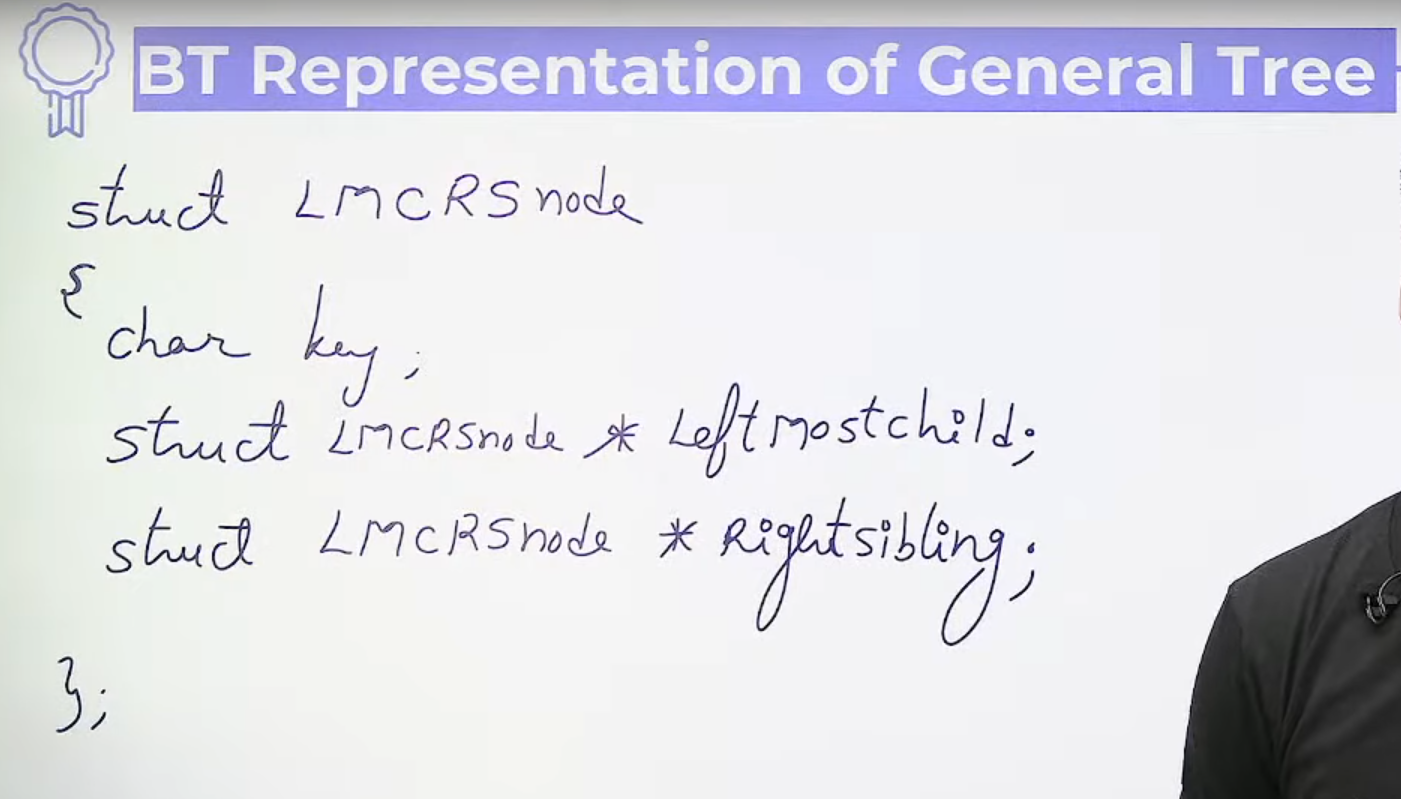 BT Representation of General Tree
struct LMCRSnode
{
char key;
struct LMCRSnode * Leftmostchild;
struct LMCRSnode * Rightsibling;
};